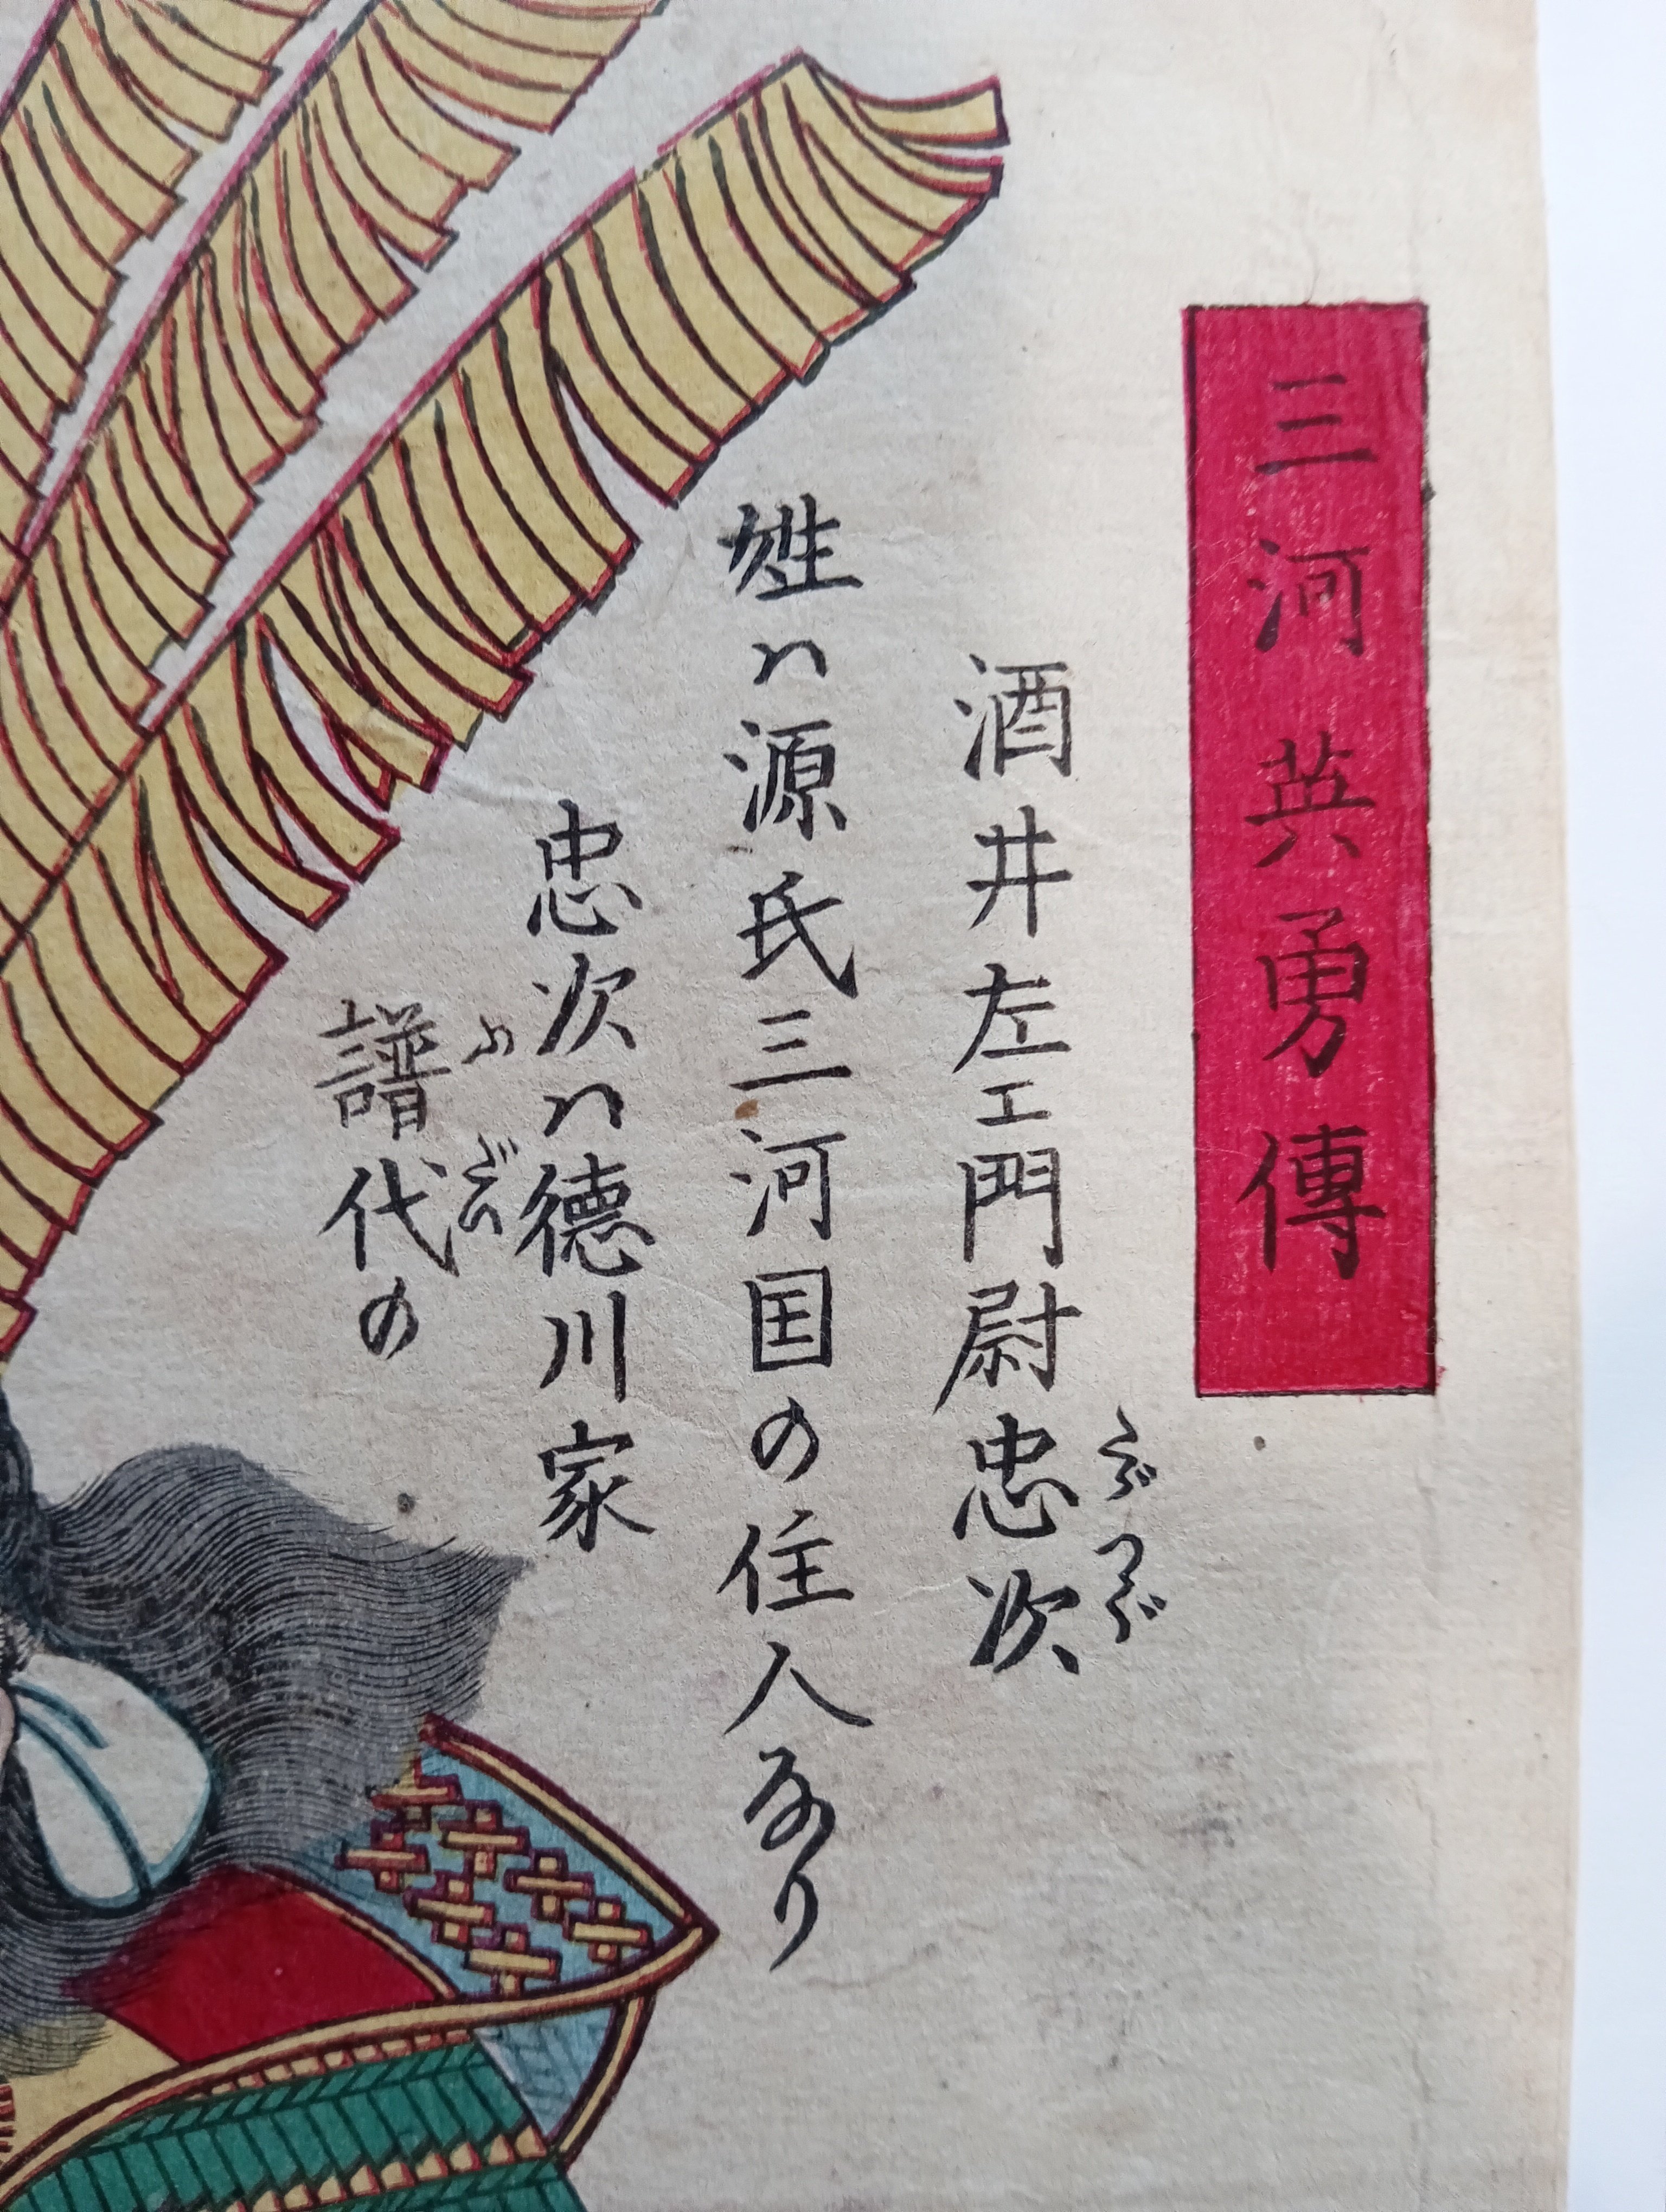 三河英勇傳
酒井左エ門尉忠次
たゞつぐ
姓ハ源氏三河国の住人なり
忠次ハ徳川家
譜代の
ふだい